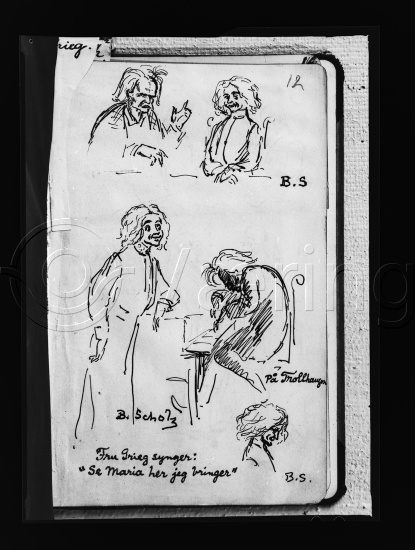 rieg.
12
B.S
På Trollhaugen
B. Scholz
Fru Grieg synger:
"Se Maria her jeg bringer"
B.S.